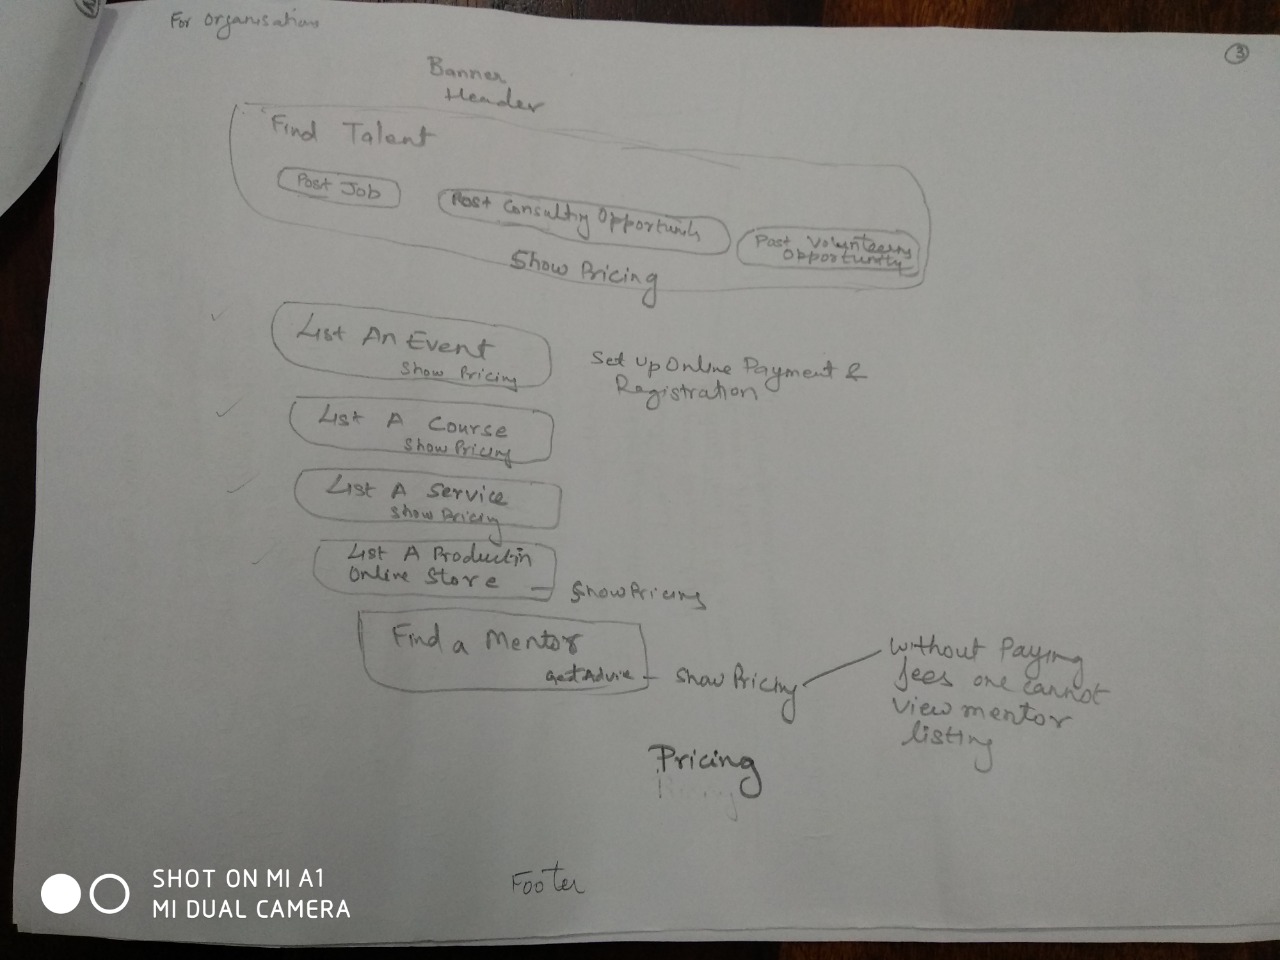 For Organisations
3
Banner
Header
Find Talent
Post Job
Post Consulting Opportunity
Post Volunteering
Opportunity
Show Pricing
List An Event
Show Pricing
Set Up Online Payment &
Registration
List A Course
Show Pricing
List A Service
Show Pricing
List A Product in
Online Store
Show Pricing
Find a Mentor
Get Advice
Show Pricing
without Paying
fees one cannot
view mentor
listing
Pricing
Footer
SHOT ON MI A1
MI DUAL CAMERA